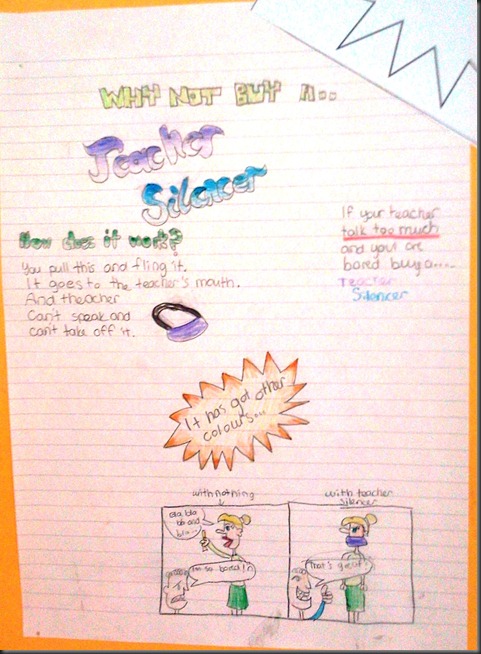 WHY NOT BUY A...
Teacher
Silencer
How does it work?
You pull this and fling it.
It goes to the teacher's mouth.
And theacher
Can't speak and
can't take off it.
If your teacher
talk too much
and you are
bored buy a....
Teacher
Silencer
It has got other
colours...
with nothing
Bla, bla
bla and
bla...
I'm so bored!
with teacher
silencer
That's great!